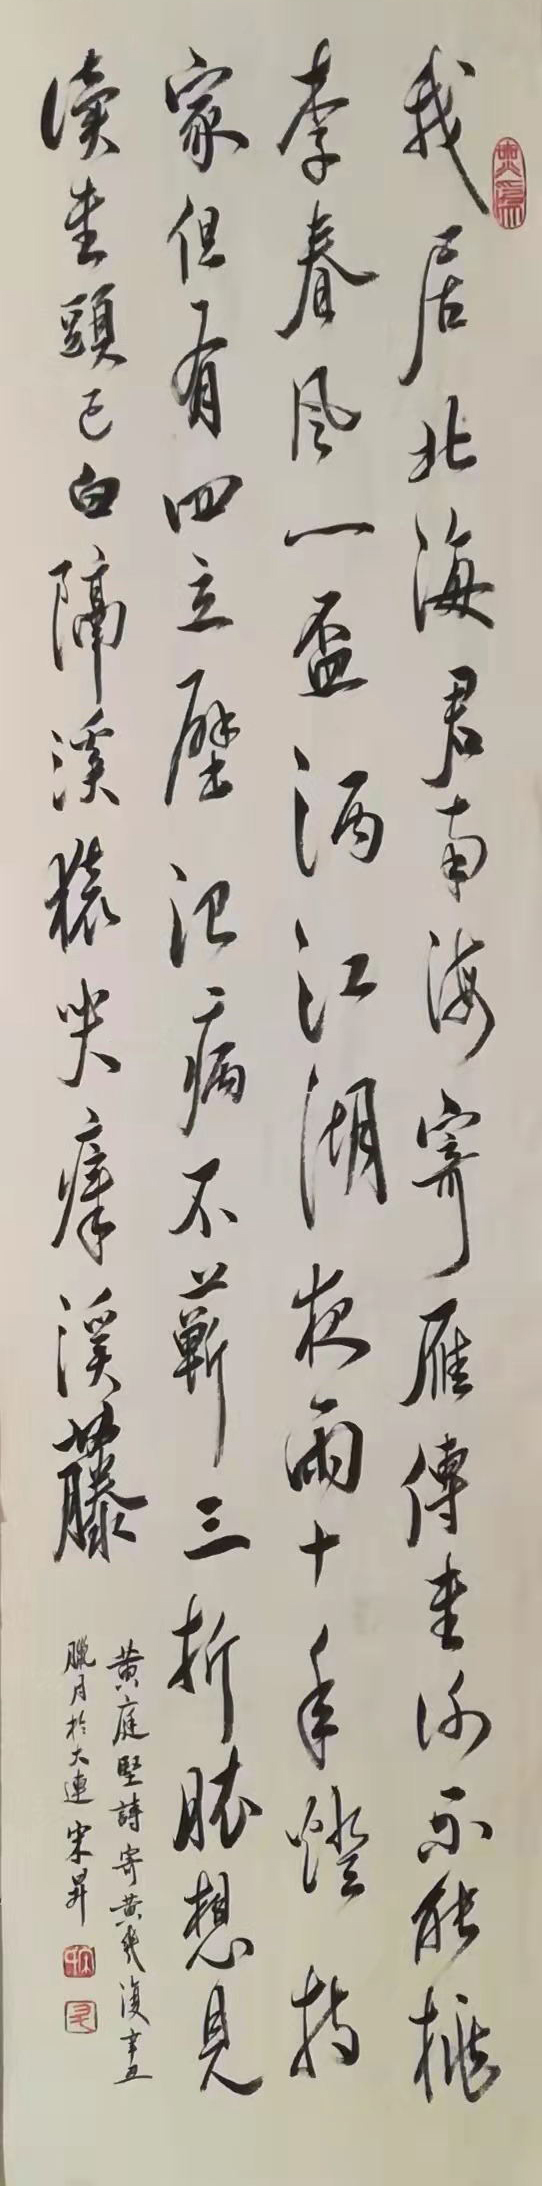 我居北海君南海寄雁傳書謝不能桃
李春風一盃酒江湖夜雨十年燈持
家但有四立壁治病不蘄三折肱想見
讀書頭已白隔溪猿哭瘴溪藤
黄庭堅詩寄黄幾復辛丑
臘月於大連宋昇